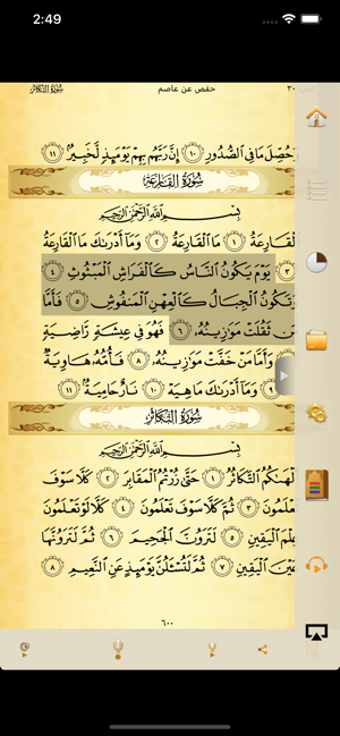 2:49
سُورَةُ التَّكَاثُرِ
حفص عن عاصم
٣٠
وَحُصِّلَ مَا فِي الصُّدُورِ ۝١٠ إِنَّ رَبَّهُم بِهِمْ يَوْمَئِذٍ لَّخَبِيرٌ ۝١١
سُورَةُ القَارِعَةِ
بِسْمِ اللَّهِ الرَّحْمَٰنِ الرَّحِيمِ
الْقَارِعَةُ ۝١ مَا الْقَارِعَةُ ۝٢ وَمَا أَدْرَىٰكَ مَا الْقَارِعَةُ
۝٣ يَوْمَ يَكُونُ النَّاسُ كَالْفَرَاشِ الْمَبْثُوثِ ۝٤
وَتَكُونُ الْجِبَالُ كَالْعِهْنِ الْمَنفُوشِ ۝٥ فَأَمَّا
مَن ثَقُلَتْ مَوَازِينُهُ ۝٦ فَهُوَ فِي عِيشَةٍ رَّاضِيَةٍ
وَأَمَّا مَنْ خَفَّتْ مَوَازِينُهُ ۝٨ فَأُمُّهُ هَاوِيَةٌ
۝٩ وَمَا أَدْرَىٰكَ مَا هِيَهْ ۝١٠ نَارٌ حَامِيَةٌ ۝١١
سُورَةُ التَّكَاثُرِ
بِسْمِ اللَّهِ الرَّحْمَٰنِ الرَّحِيمِ
أَلْهَىٰكُمُ التَّكَاثُرُ ۝١ حَتَّىٰ زُرْتُمُ الْمَقَابِرَ ۝٢ كَلَّا سَوْفَ
تَعْلَمُونَ ۝٣ ثُمَّ كَلَّا سَوْفَ تَعْلَمُونَ ۝٤ كَلَّا لَوْ تَعْلَمُونَ
عِلْمَ الْيَقِينِ ۝٥ لَتَرَوُنَّ الْجَحِيمَ ۝٦ ثُمَّ لَتَرَوُنَّهَا
عَيْنَ الْيَقِينِ ۝٧ ثُمَّ لَتُسْـَٔلُنَّ يَوْمَئِذٍ عَنِ النَّعِيمِ ۝٨
٦٠٠